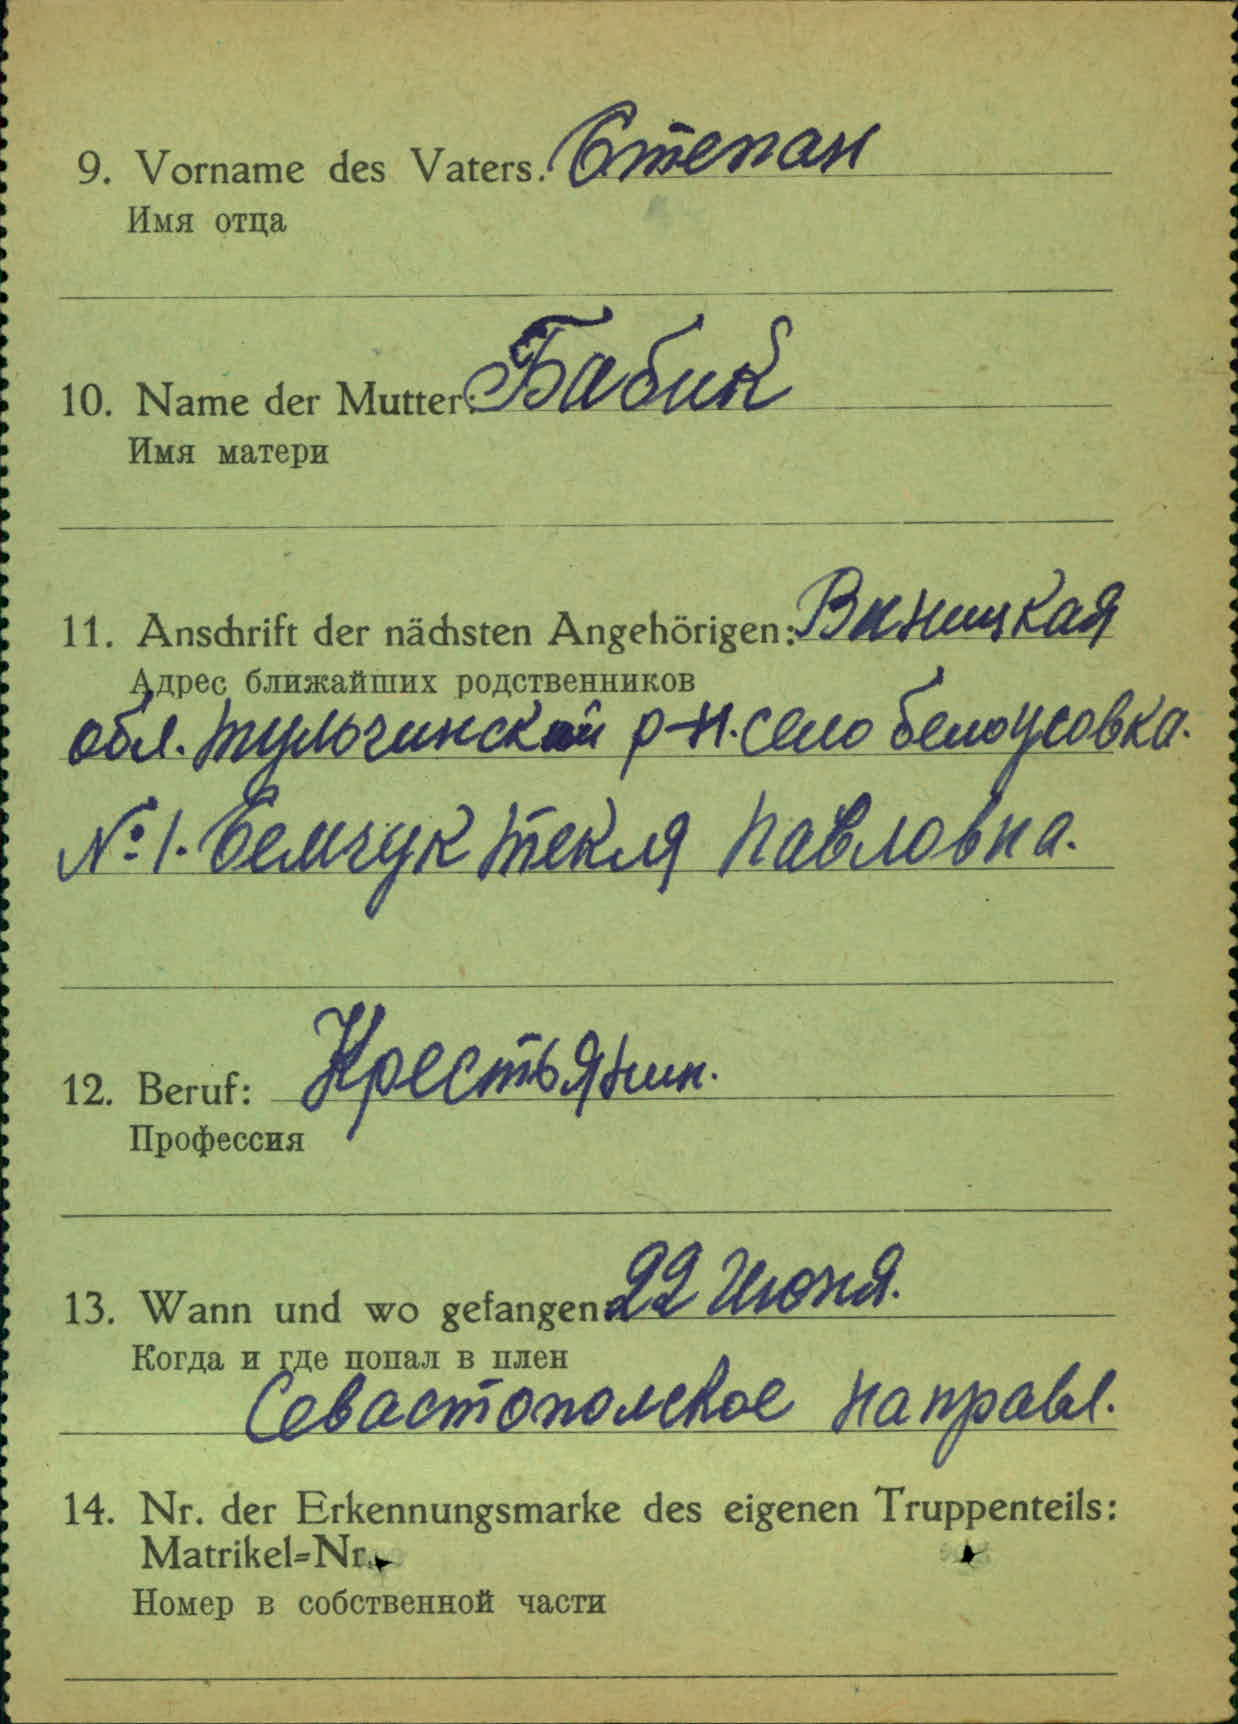 9. Vorname des Vaters. Степан
Имя отца
10. Name der Mutter: Бабик
Имя матери
11. Anschrift der nächsten Angehörigen: Виницкая
Адрес ближайших родственников
обл. Тульчинский р-н. село Белоусовка.
№ 1. Текля Павловна.
12. Beruf: Крестьянин.
Профессия
13. Wann und wo gefangen: 22 Июня.
Когда и где попал в плен
Севастополское направл.
14. Nr. der Erkennungsmarke des eigenen Truppenteils:
Matrikel=Nr.
Номер в собственной части